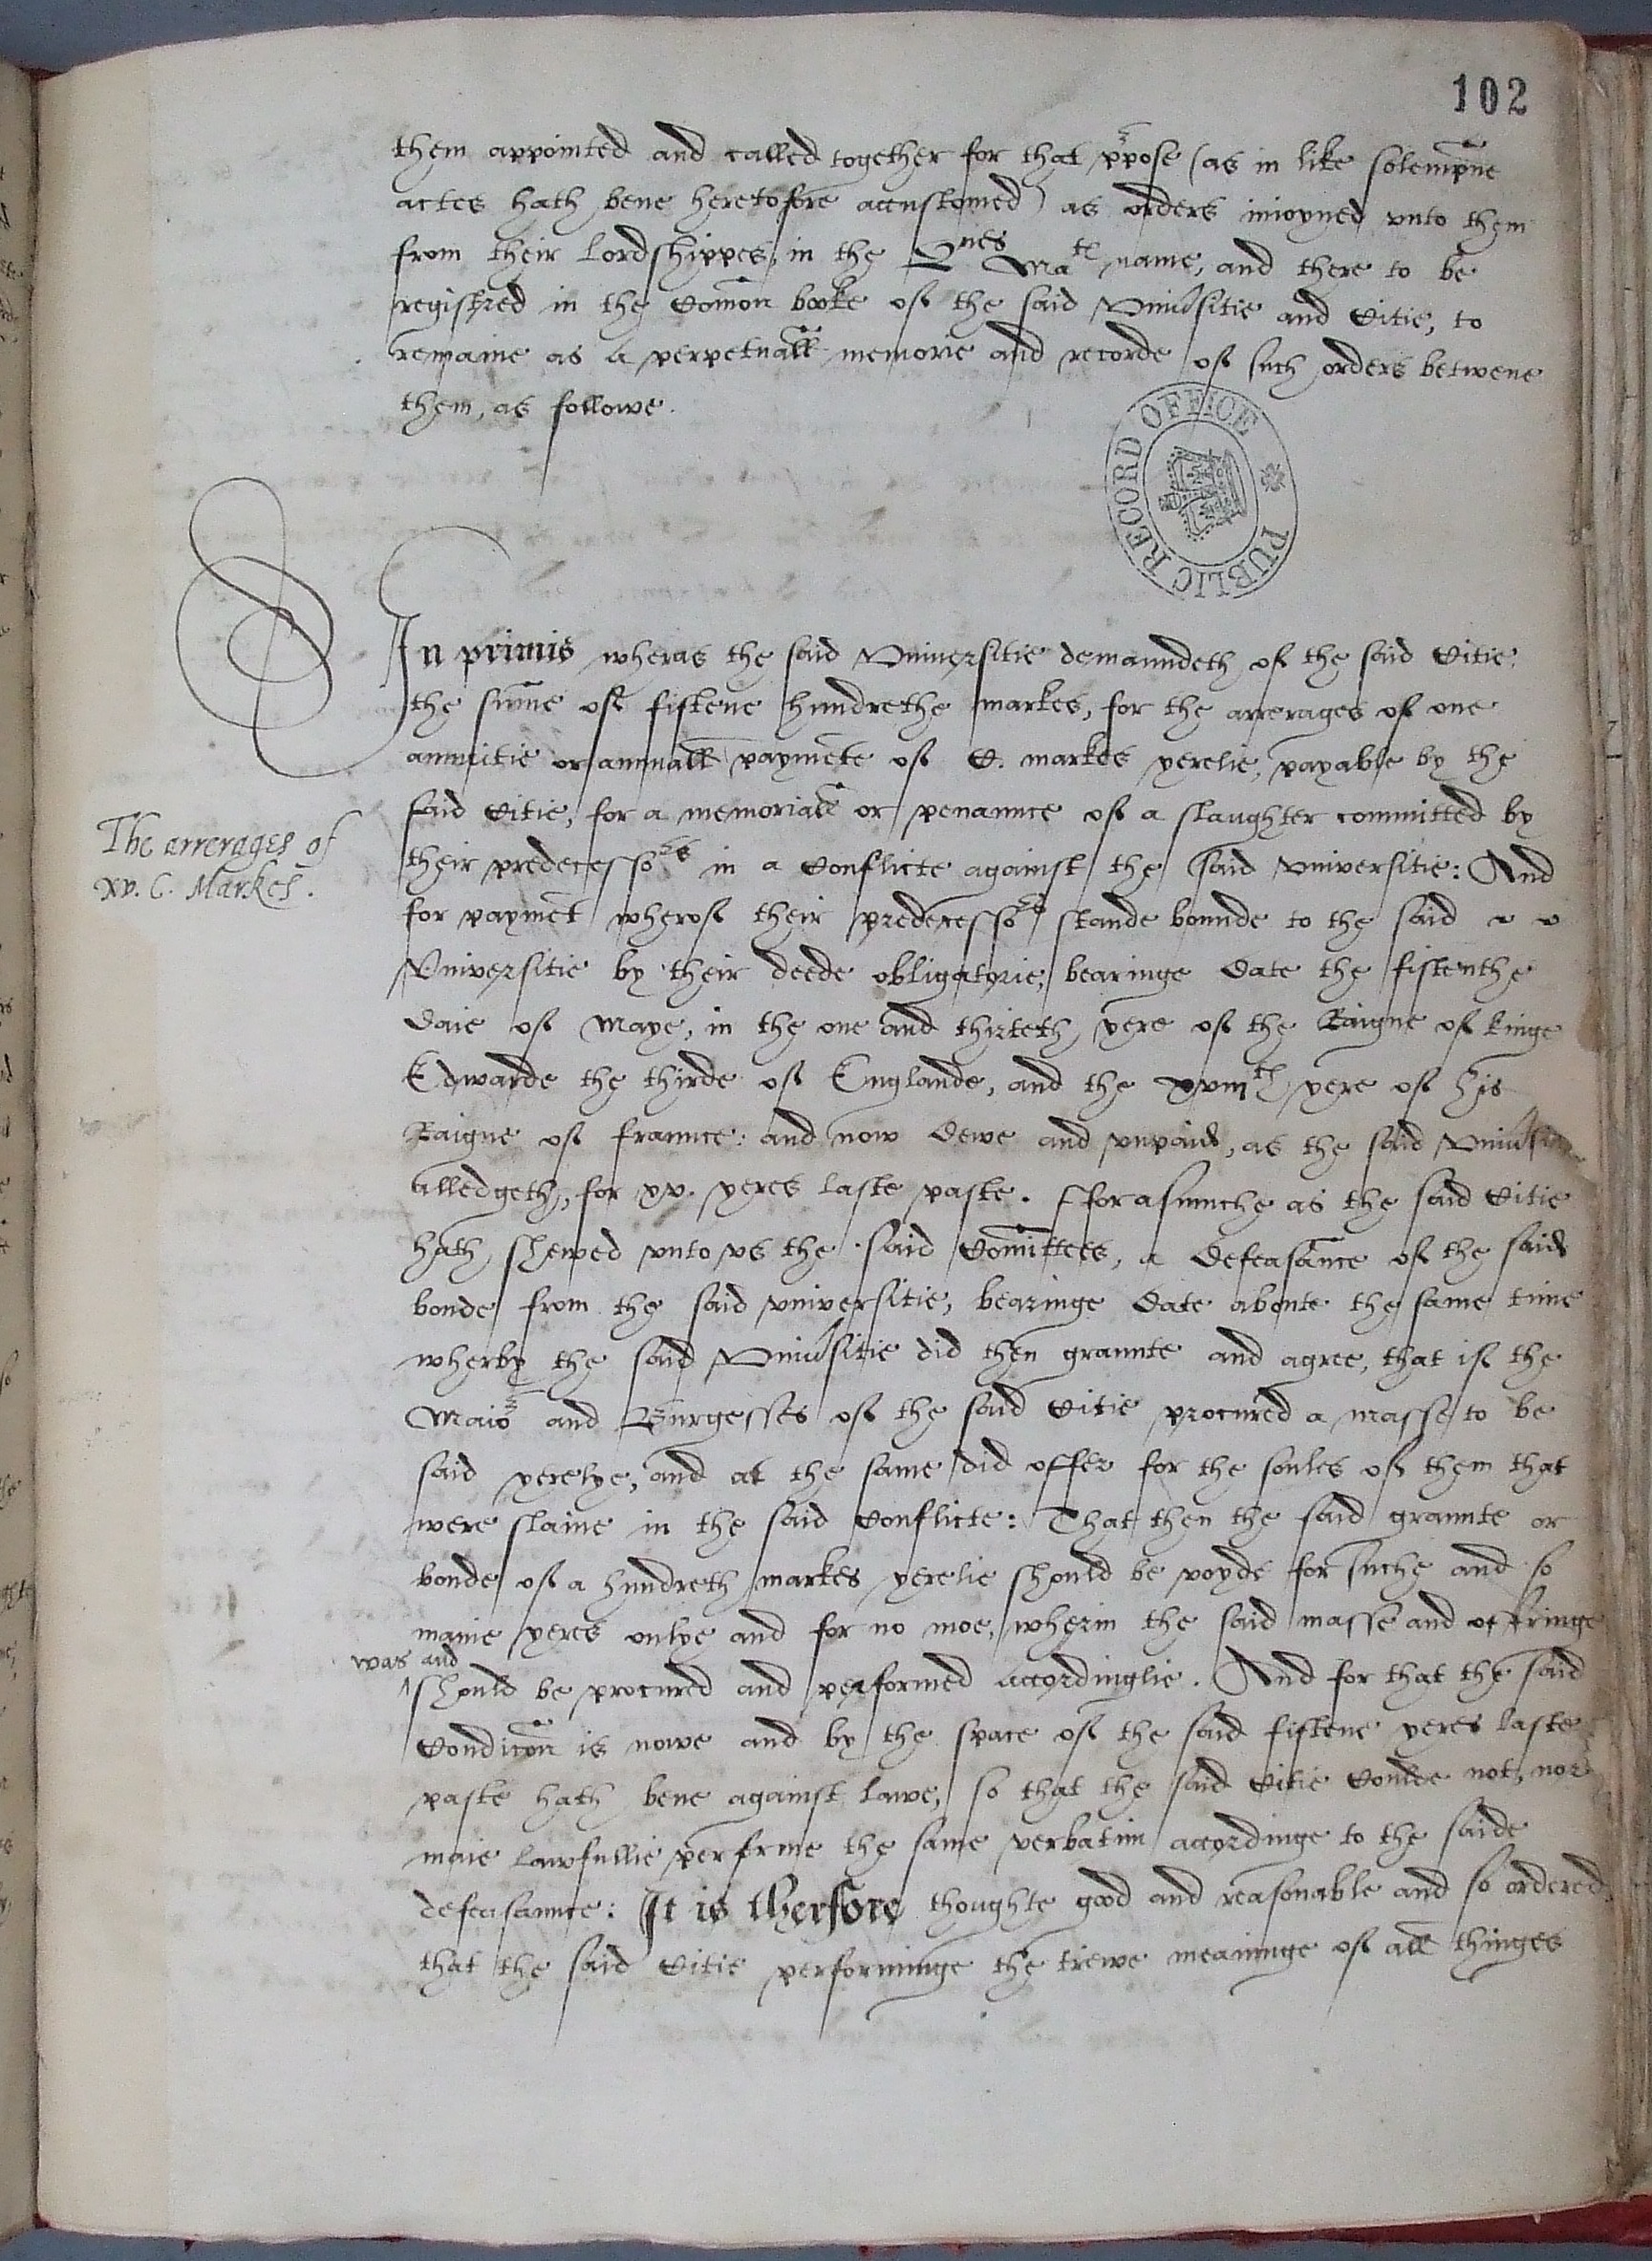 102
them appointed and called together for that ppose (as in like solempne
actes hath bene heretofore accustomed) as orders inioyned vnto them
from their Lordshippes, in the Qnes Mate name, and there to be
registred in the Comon booke of the said Vniusitie and Citie, to
remaine as a perpetuall memorie and recorde of such orders betwene
them, as followe.
PUBLIC RECORD OFFICE
In primis wheras the said Vniuersitie demaundeth of the said Citie,
the sume of fiftene hundrethe markes, for the arrerages of one
annuitie or annuall paymete of C. markes yerelie, payable by the
said Citie, for a memoriall or penannce of a slaughter committed by
The arrerages of
xv. C. Markes.
their predecessors in a Conflicte against the said Vniversitie: And
for paymet wherof their predecessors stande bounde to the said
Vniversitie by their deede obligatorie, bearinge date the fiftenthe
daie of Maye, in the one and thirteth yere of the Raigne of kinge
Edwarde the third of Englande, and the xviijth yere of his
Raigne of fraunce: and now dewe and vnpaid, as the said Vniusitie
alledgeth, for xv. yeres laste paste. fforasmuche as the said Citie
hath shewed vnto vs the said Comittees, a defeasance of the said
bonde from the said vniversitie, bearinge date aboute the same time
wherby the said Vniusitie did then graunte and agree, that if the
Maior and Burgesses of the said Citie procured a masse to be
said yerelye, and at the same did offer for the soules of them that
were slaine in the said Conflicte: That then the said graunte or
bonde of a hundreth markes yerelie should be voyde for suche and so
manie yeres onlye and for no moe, wherin the said masse and offringe
was and
should be procured and performed accordinglie. And for that the said
Condicon is nowe and by the space of the said fiftene yeres laste
paste hath bene against lawe, so that the said Citie Coulde not, nor
maie lawfullie perfrme the same verbatim accordinge to the saide
defeasannce: It is therfore thoughte good and reasonable and so ordered,
that the said Citie performinge the trewe meaninge of all thinges